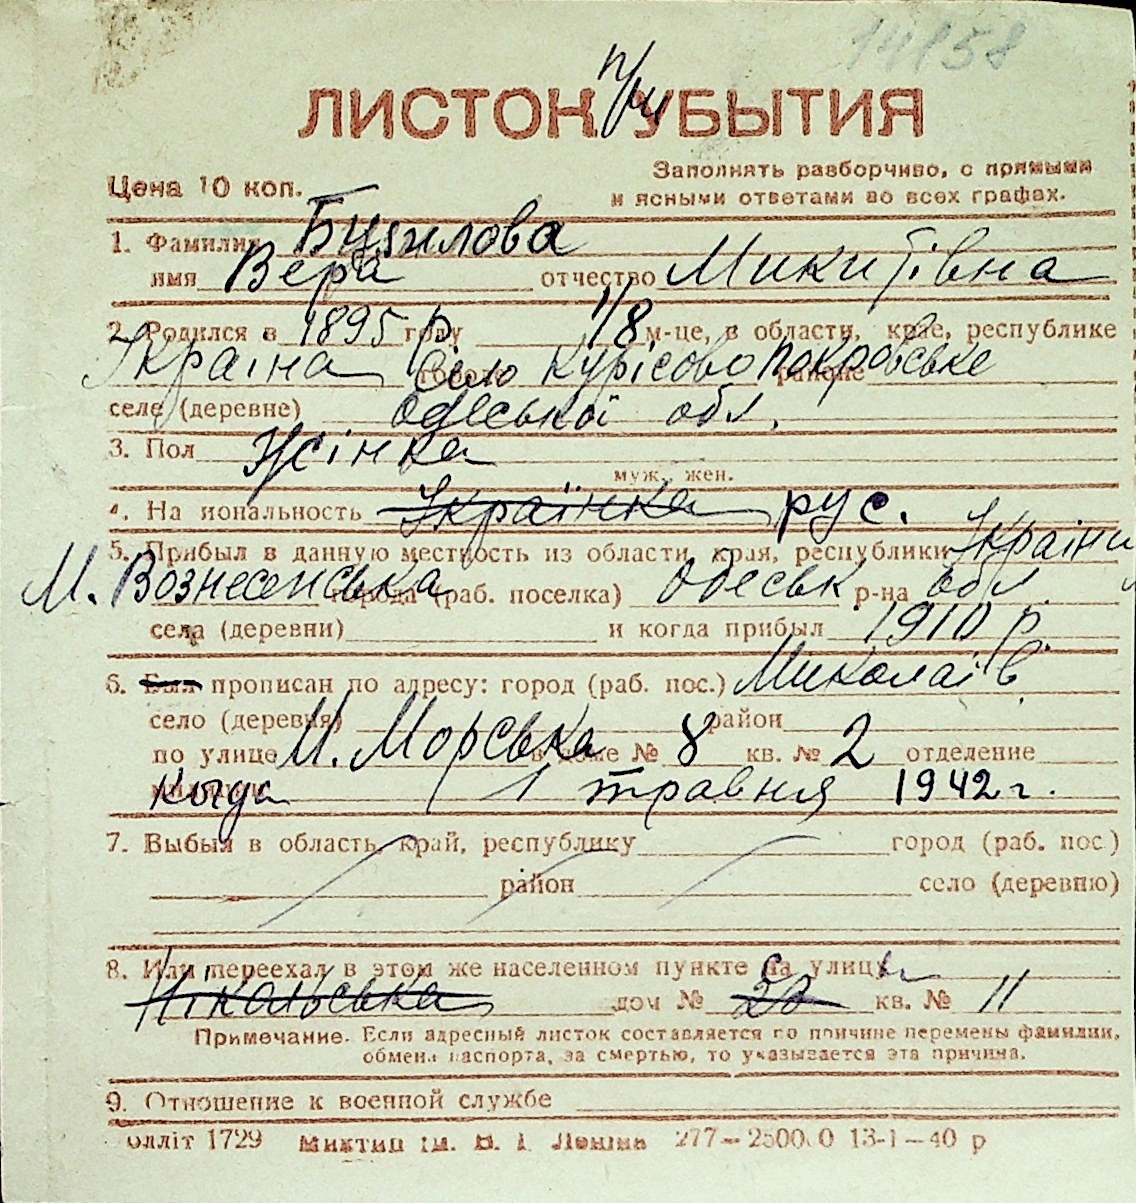 14858
п/ш
ЛИСТОК УБЫТИЯ
Цена 10 коп.
Заполнять разборчиво, с прямыми
и ясными ответами во всех графах.
1. Фамилия Бузилова
имя Вера отчество Микитівна
2. Родился в 1895 р году 1/8 м-це, в области, крае, республике
Україна городе село Курісово Покровське районе
селе (деревне) Одеської обл.
3. Пол Жінка
муж., жен.
4. Национальность Українка рус.
5. Прибыл в данную местность из области, края, республики України
М. Вознесенська города (раб. поселка) Одеськ р-на обл
села (деревни) и когда прибыл 1910 р
6. Был прописан по адресу: город (раб. пос.) Миколаїв
село (деревня) район
по улице М. Морська в доме № 8 кв. № 2 отделение
милиции когда 1 травня 1942 г.
7. Выбыл в область, край, республику город (раб. пос.)
район село (деревню)
8. Или переехал в этом же населенном пункте на улицу
Нікольська дом № 20 кв. № 11
Примечание. Если адресный листок составляется по причине перемены фамилии,
обмена паспорта, за смертью, то указывается эта причина.
9. Отношение к военной службе
олліт 1729 Миктип ім. В. І. Леніна 277—25000 13-1—40 р